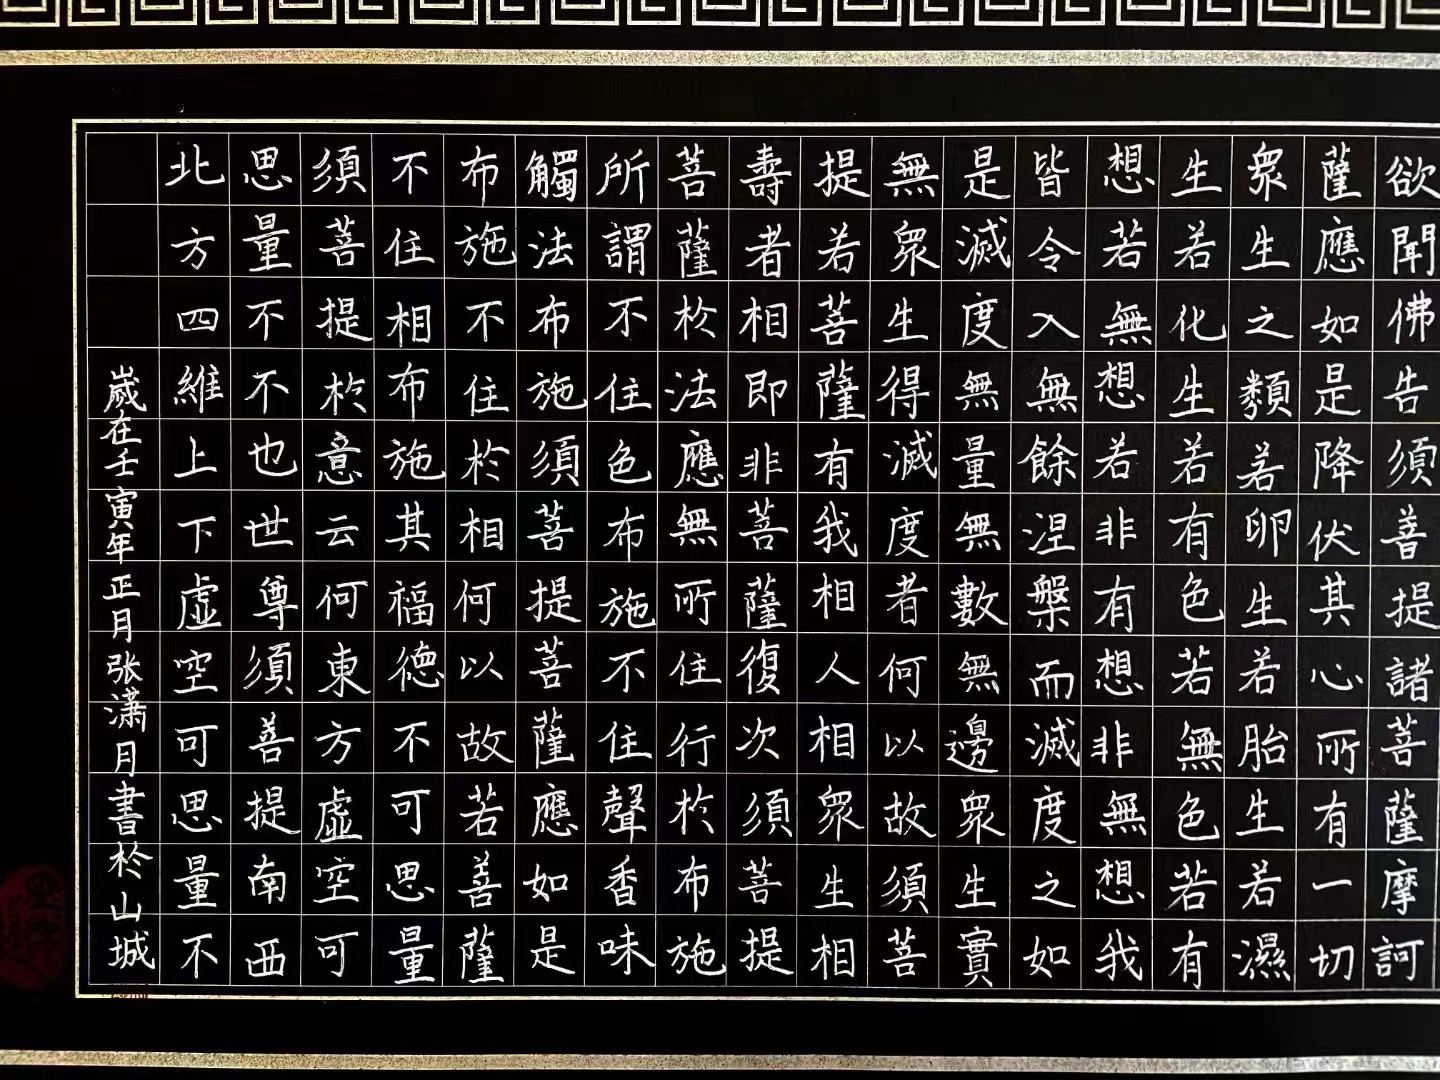 欲聞佛告須菩提諸菩薩摩訶
薩應如是降伏其心所有一切
眾生之類若卵生若胎生若濕
生若化生若有色若無色若有
想若無想若非有想非無想我
皆令入無餘涅槃而滅度之如
是滅度無量無數無邊眾生實
無眾生得滅度者何以故須菩
提若菩薩有我相人相眾生相
壽者相即非菩薩復次須菩提
菩薩於法應無所住行於布施
所謂不住色布施不住聲香味
觸法布施須菩提菩薩應如是
布施不住於相何以故若善薩
不住相布施其福德不可思量
須菩提於意云何東方虛空可
思量不不也世尊須善提南西
北方四維上下虛空可思量不
嵗在壬寅年正月张潇月書於山城